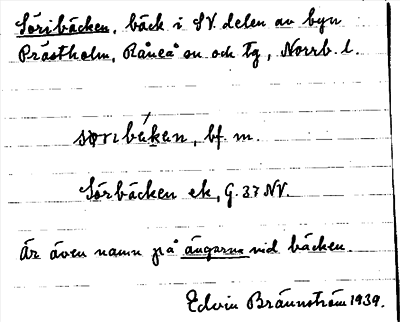 Söribäcken, bäck i SV. delen av byn
Prästholm, Råneå sn och tg, Norrb. l.
sǫrιbäkan, bf. m.
Sörbäcken ek, G. 37 NV.
Är även namn på ängarna vid bäcken.
Edvin Brännström 1939.